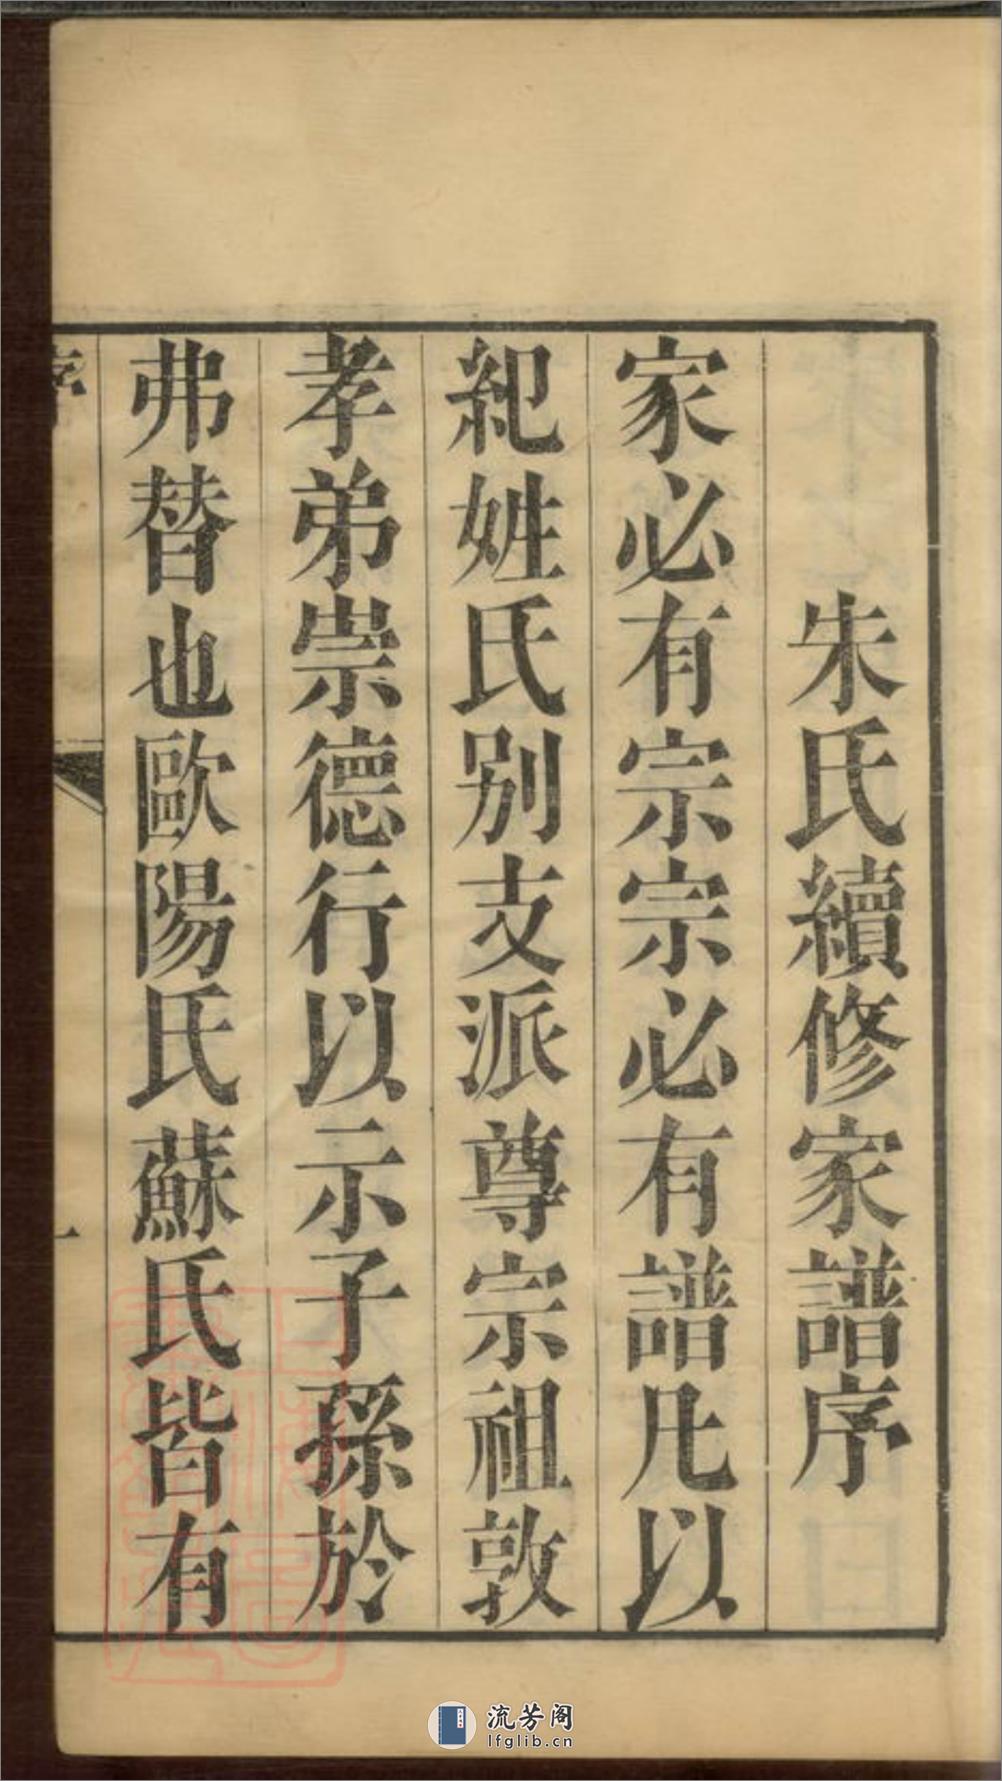 朱氏續修家譜序
家必有宗宗必有譜凡以
紀姓氏别支派尊宗祖敦
孝弟崇德行以示子孫於
弗替也歐陽氏蘇氏皆有
序
一
流芳阁
lfglib.cn